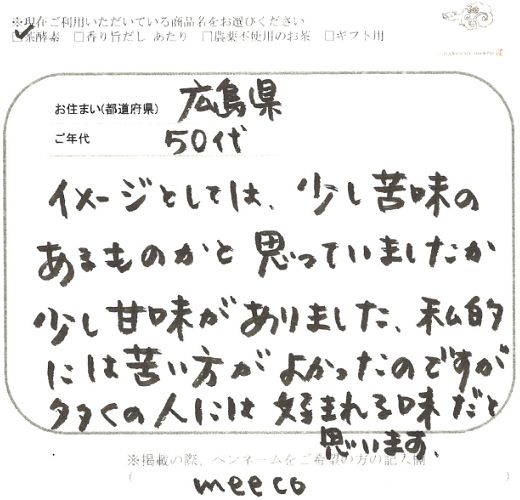 ※現在ご利用いただいている商品名をお選びください
□茶酵素 □香り旨だし あたり □農薬不使用のお茶 □ギフト用
お住まい(都道府県) 広島県
ご年代 50代
イメージとしては、少し苦味の
あるものかと思っていましたか
少し甘味がありました、私的
には苦い方がよかったのですが
多くの人には好まれる味だと
思います、
※掲載の際、ペンネームをご希望の方の記入欄
( meeco )